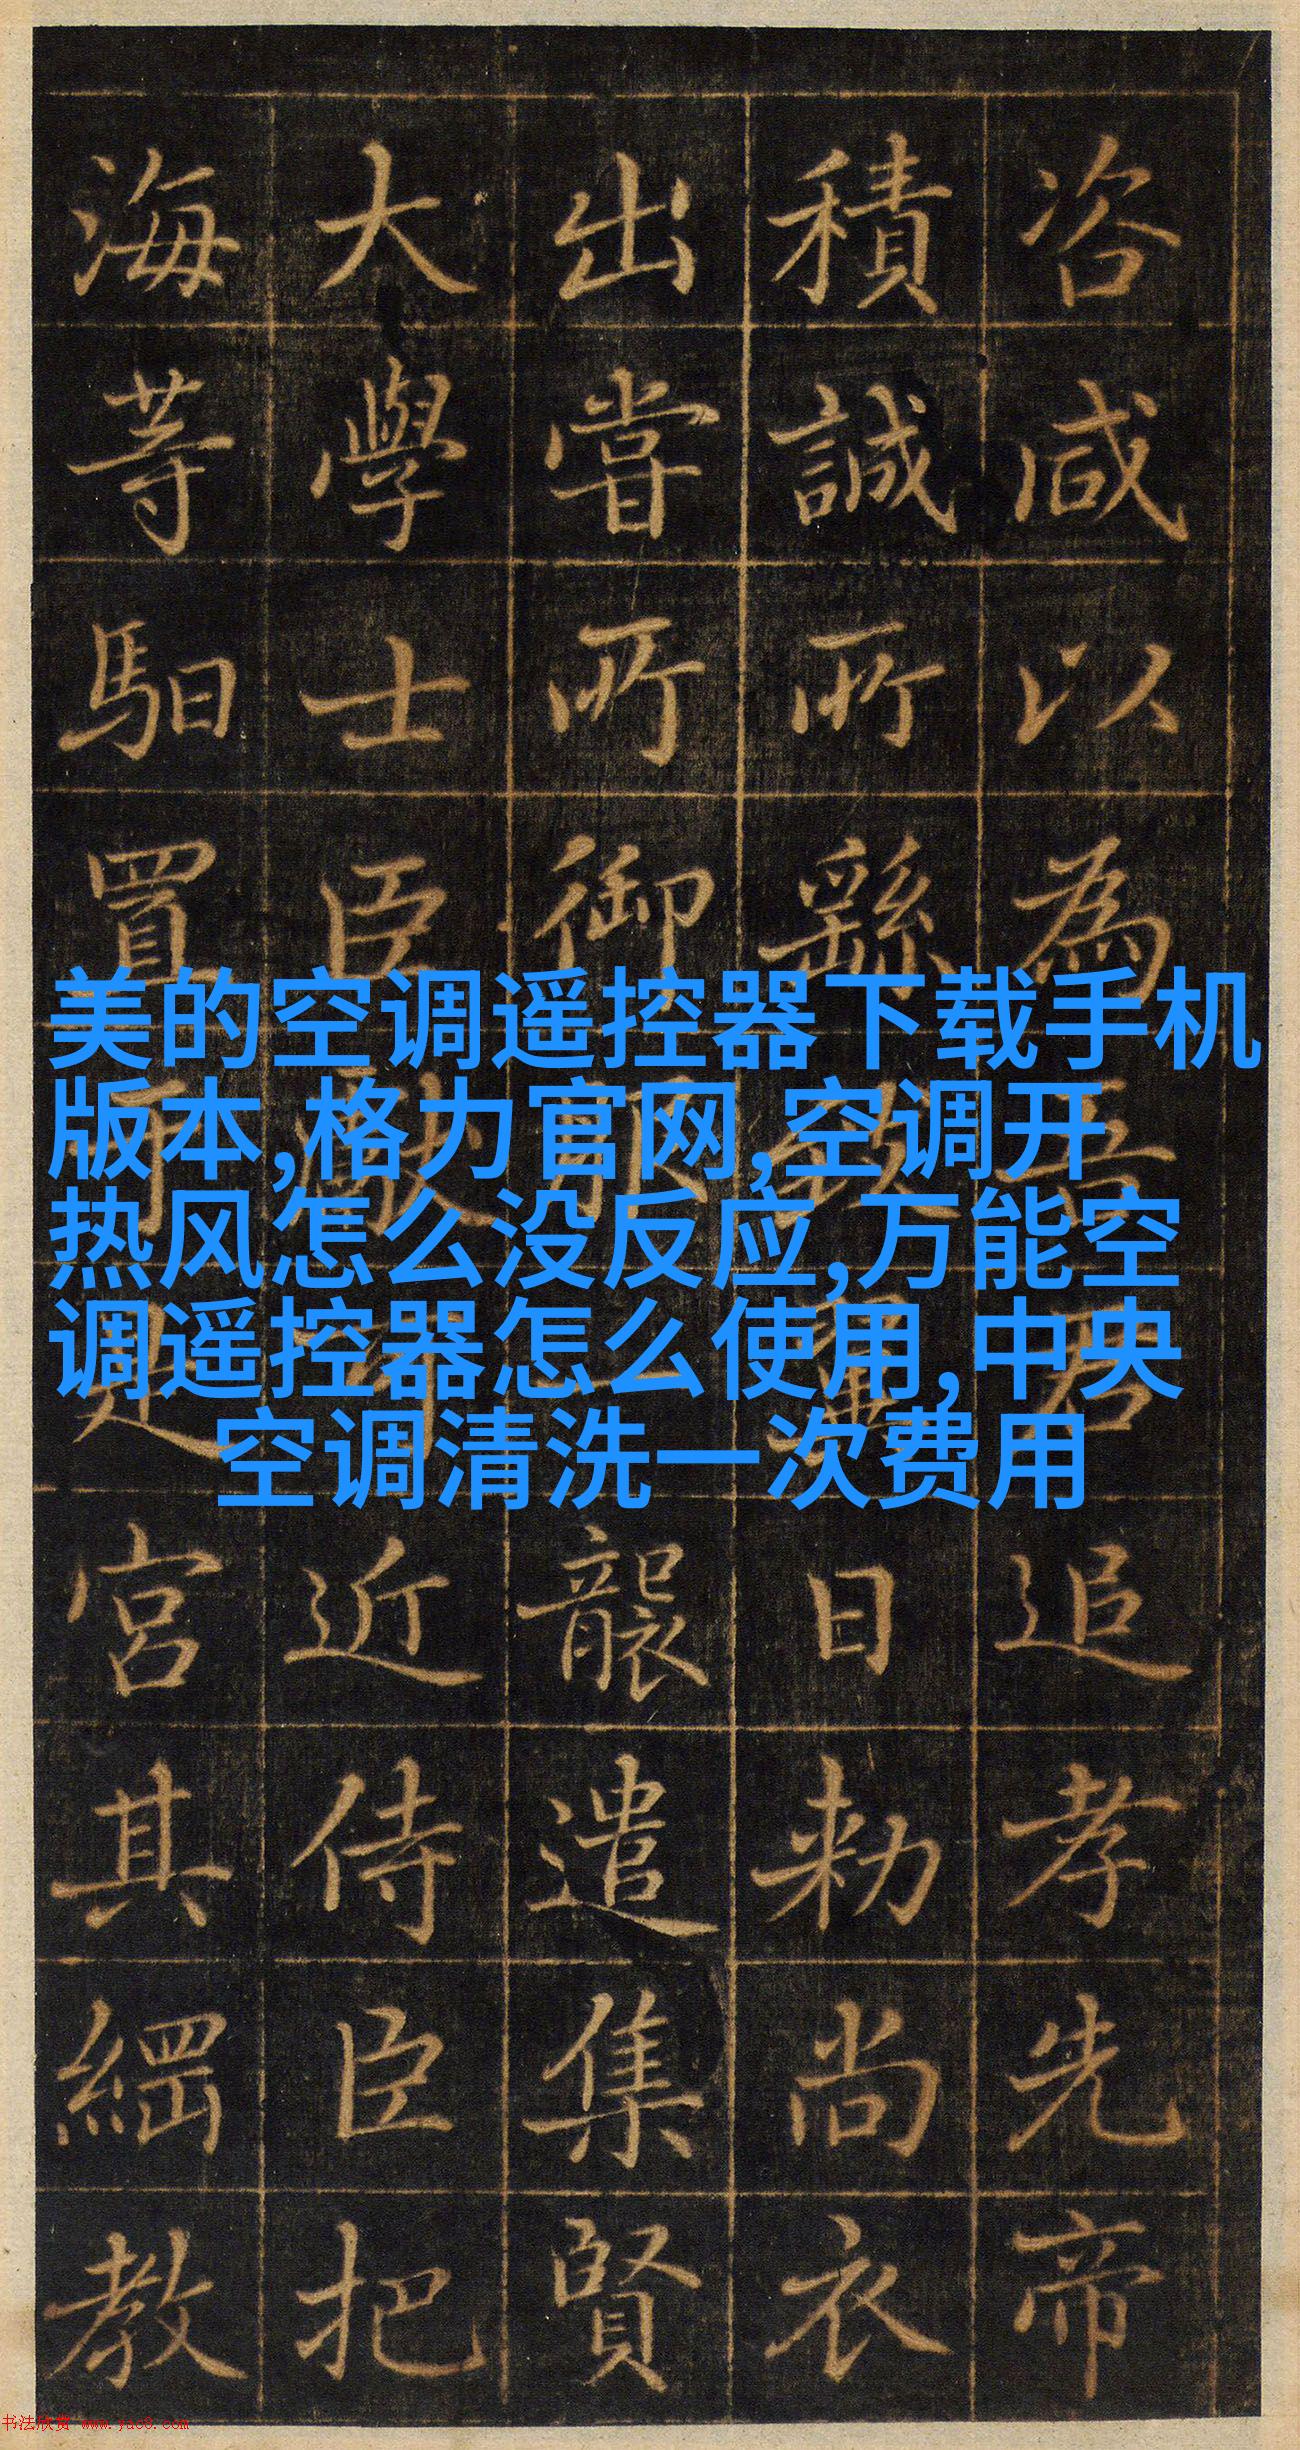 美的空调遥控器下载手机
版本,格力官网,空调开
热风怎么没反应,万能空
调遥控器怎么使用,中央
空调清洗一次费用
咨咸以為吾君追孝先帝
積誠所繇致日勅尚衣
出嘗所御服一襲遣集賢
大學士臣獻近侍臣把
海等馹置于宮其綱教
书法欣赏 www.yac8.com